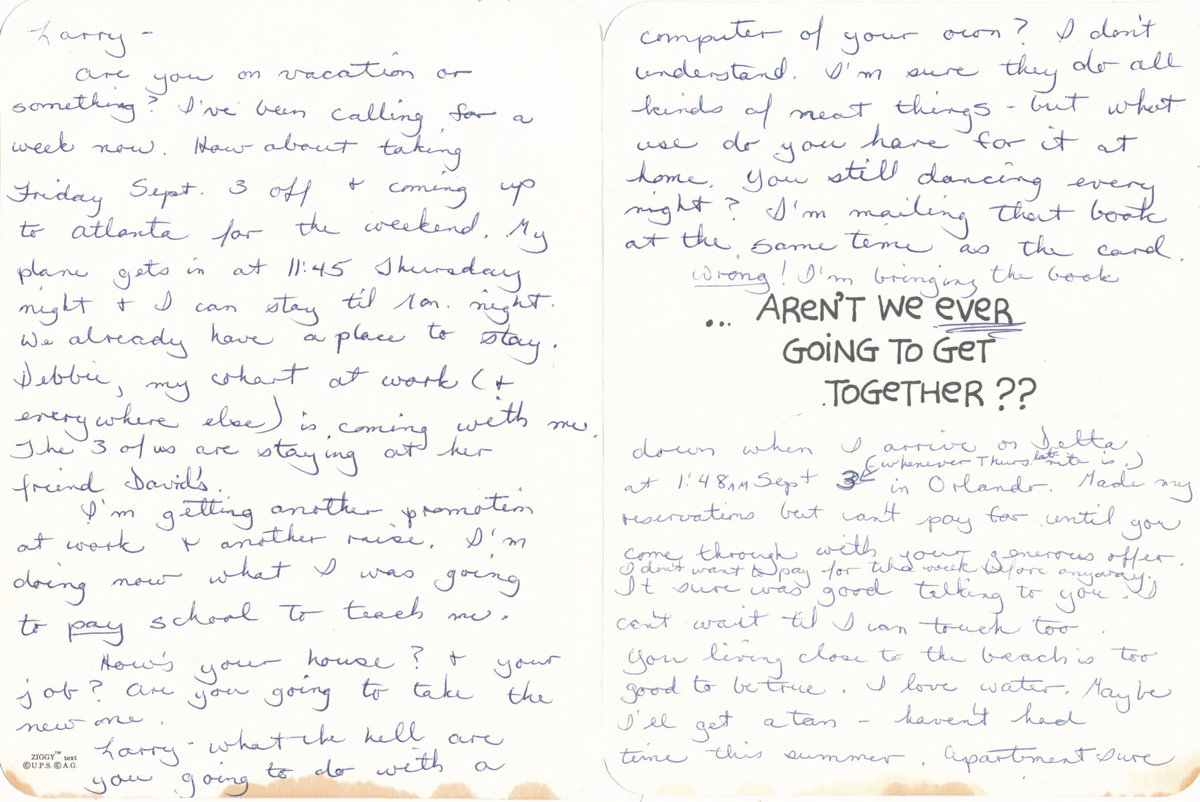 Larry -
are you on vacation or
something? I've been calling for a
week now. How about taking
Friday Sept. 3 off + coming up
to atlanta for the weekend. My
plane gets in at 11:45 Thursday
night + I can stay til Mon. night.
We already have a place to stay.
Debbie, my cohart at work (+
everywhere else) is coming with me.
The 3 of us are staying at her
friend David's.
I'm getting another promotion
at work + another raise. I'm
doing now what I was going
to pay school to teach me.
How's your house? + your
job? are you going to take the
new one.
Larry - what the hell are
you going to do with a
ZIGGY™ text
©U.P.S. © A.G.
computer of your own? I don't
understand. I'm sure they do all
kinds of neat things - but what
use do you have for it at
home. You still dancing every
night? I'm mailing that book
at the same time as the card.
Wrong! I'm bringing the book
... AREN'T WE EVER
GOING TO GET
TOGETHER ??
down when I arrive on Delta
(whenever Thurs. late nite is.)
at 1:48 AM Sept 3 in Orlando. Made my
reservations but can't pay for until you
come through with your generous offer.
I don't want to pay for the week before anyway.
It sure was good talking to you. I
can't wait til I can touch too.
You living close to the beach is too
good to be true. I love water. Maybe
I'll get a tan - haven't had
time this summer. Apartment sure